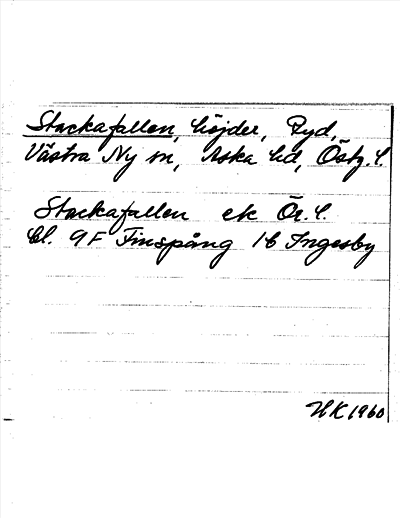 Stackafallen, höjder, Ryd,
Västra Ny sn, Aska hd, Östg. l.
Stackafallen ek Ör. l.
bl. 9F Finspång 1b Ingesby
HK 1960